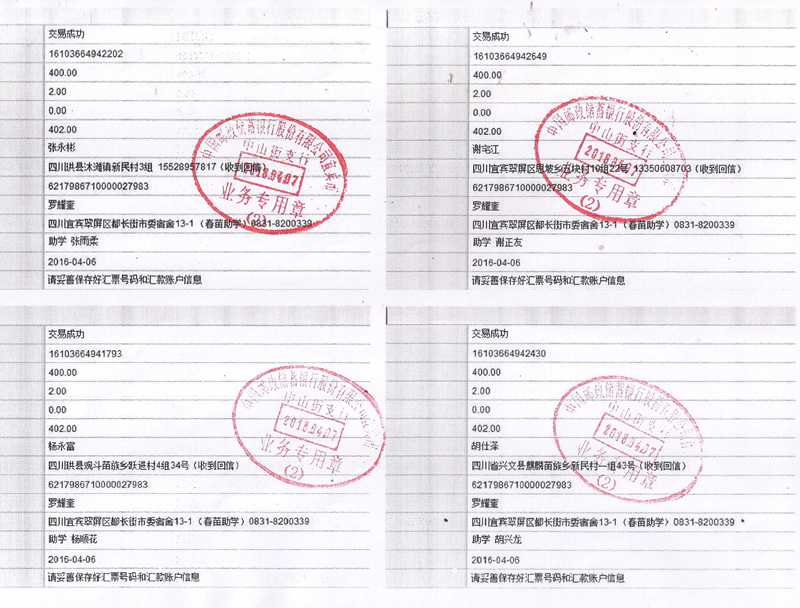 交易成功
16103664942202
400.00
2.00
0.00
402.00
张永彬
四川珙县沐滩镇新民村3组 15528957817(收到回信)
6217986710000027983
罗耀奎
四川宜宾翠屏区都长街市委宿舍13-1(春苗助学)0831-8200339
助学 张雨柔
2016-04-06
请妥善保存好汇票号码和汇款账户信息
中国邮政储蓄银行股份有限公司宜宾市
中山街支行
2016.04.07
业务专用章
(2)
交易成功
16103664942649
400.00
2.00
0.00
402.00
谢宅江
四川宜宾翠屏区思坡乡五块村10组22号 13350608703(收到回信)
6217986710000027983
罗耀奎
四川宜宾翠屏区都长街市委宿舍13-1(春苗助学)0831-8200339
助学 谢正友
2016-04-06
请妥善保存好汇票号码和汇款账户信息
中国邮政储蓄银行股份有限公司宜宾市
中山街支行
2016.04.07
业务专用章
(2)
交易成功
16103664941793
400.00
2.00
0.00
402.00
杨永富
四川珙县观斗苗族乡跃进村4组34号(收到回信)
6217986710000027983
罗耀奎
四川宜宾翠屏区都长街市委宿舍13-1(春苗助学)0831-8200339
助学 杨顺花
2016-04-06
请妥善保存好汇票号码和汇款账户信息
中国邮政储蓄银行股份有限公司
中山街支行
2016.04.07
业务专用章
(2)
交易成功
16103664942430
400.00
2.00
0.00
402.00
胡仕泽
四川省兴文县麒麟苗族乡新民村一组43号(收到回信)
6217986710000027983
罗耀奎
四川宜宾翠屏区都长街市委宿舍13-1(春苗助学)0831-8200339
助学 胡兴龙
2016-04-06
请妥善保存好汇票号码和汇款账户信息
中国邮政储蓄银行股份有限公司
中山街支行
2016.04.07
业务专用章
(2)